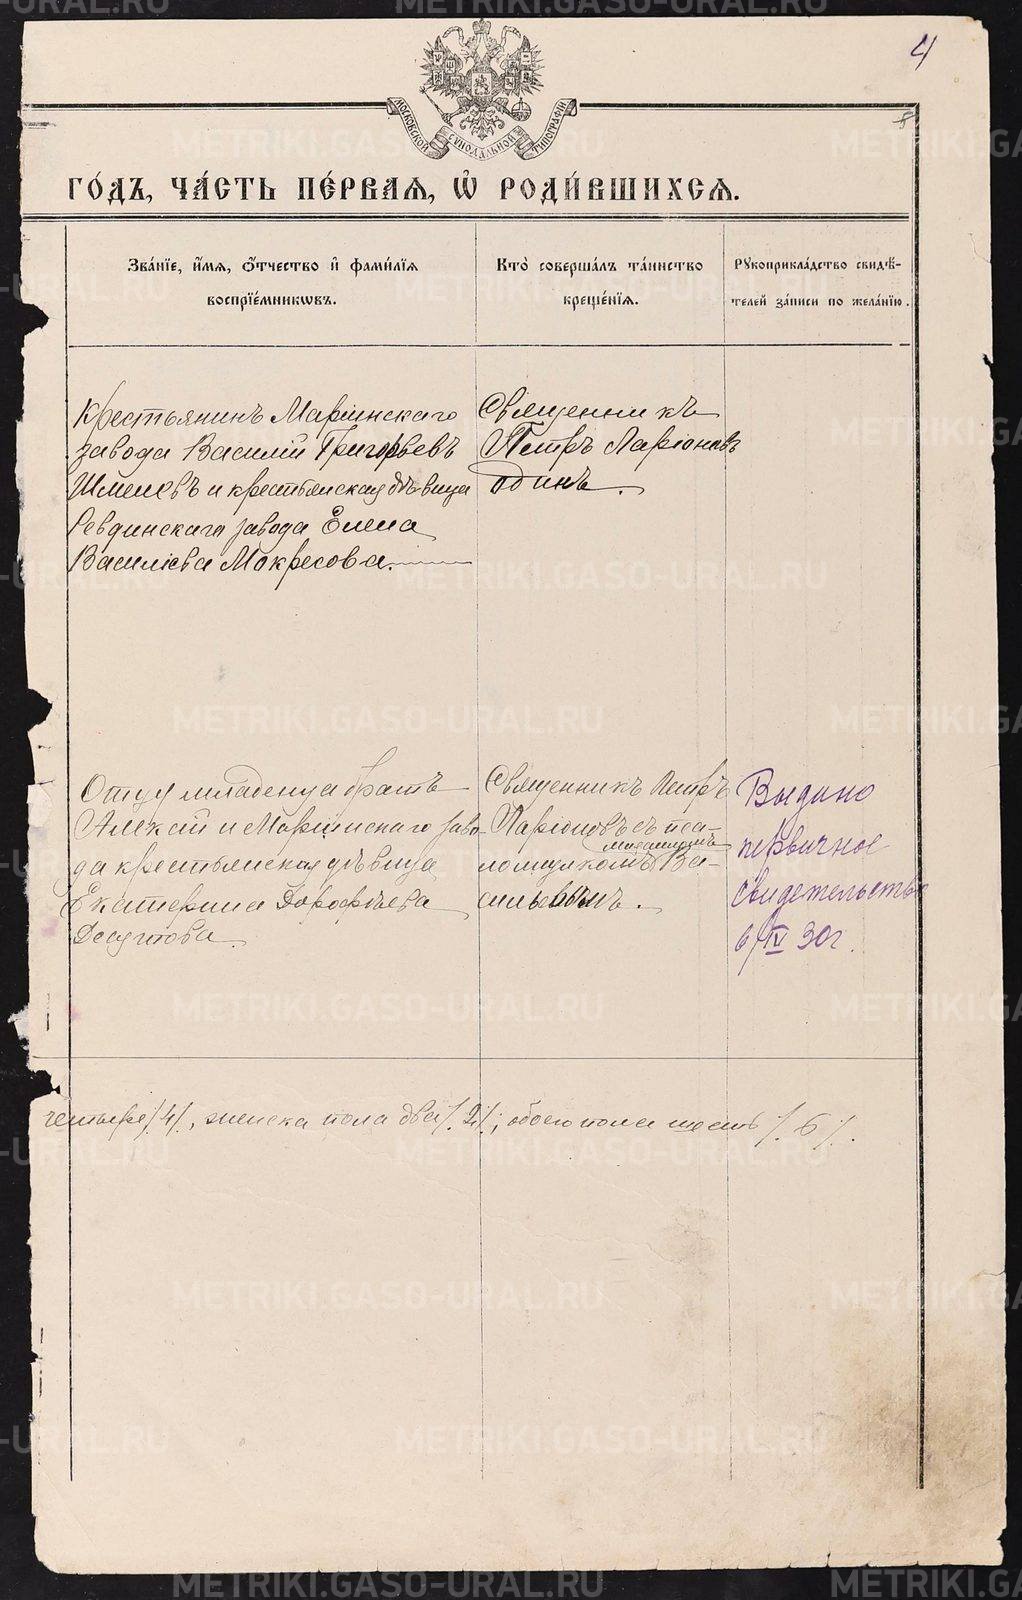 4
МОСКОВСКОЙ СѴНОДАЛЬНОЙ ТИПОГРАФІИ
ГО́ДЪ, ЧА́СТЬ ПЕ́РВАѦ, Ѽ РОДИ́ВШИХСѦ.
Зва́нїе, и҆́мѧ, ѻ҆́тчество и҆ фами́лїѧ
воспрїе́мникѡвъ.
Кто̀ соверша́лъ та́инство
креще́нїѧ.
Рꙋкоприкла́дство свидѣ́-
телей за́писи по жела́нїю.
Крестьянинъ Маріинскаго
завода Василій Григорьевъ
Шмелевъ и крестьянская дѣвица
Ревдинскаго завода Елена
Василіева Мокресова.
Священникъ
Петръ Ларіоновъ
одинъ.
Отца младенца братъ
Алексій и Маріинскаго заво-
да крестьянская дѣвица
Екатерина Дорофѣева
Десятова.
Священникъ Петръ
Ларіоновъ съ пса-
ломщикомъ Ва-
сильевымъ.
Выдано
первичное
свидетельство
6/IV 30г.
четыре /4/, женска пола два /2/, обоего пола шесть /6/.
METRIKI.GASO-URAL.RU